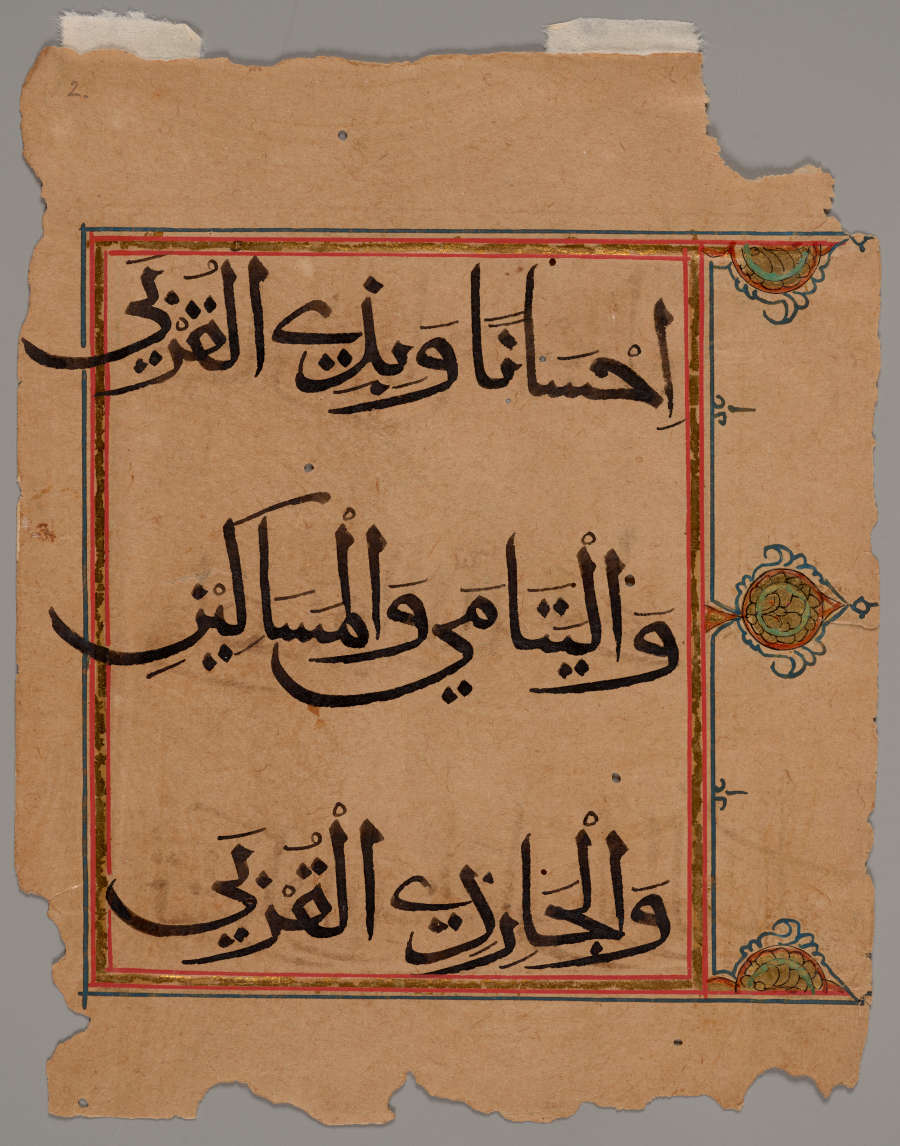 2.
اِحْسَانًا وَبِذِي الْقُرْبَي
وَالْيَتَامَي وَالْمَسَاكِينِ
وَالْجَارِ ذِي الْقُرْبَي